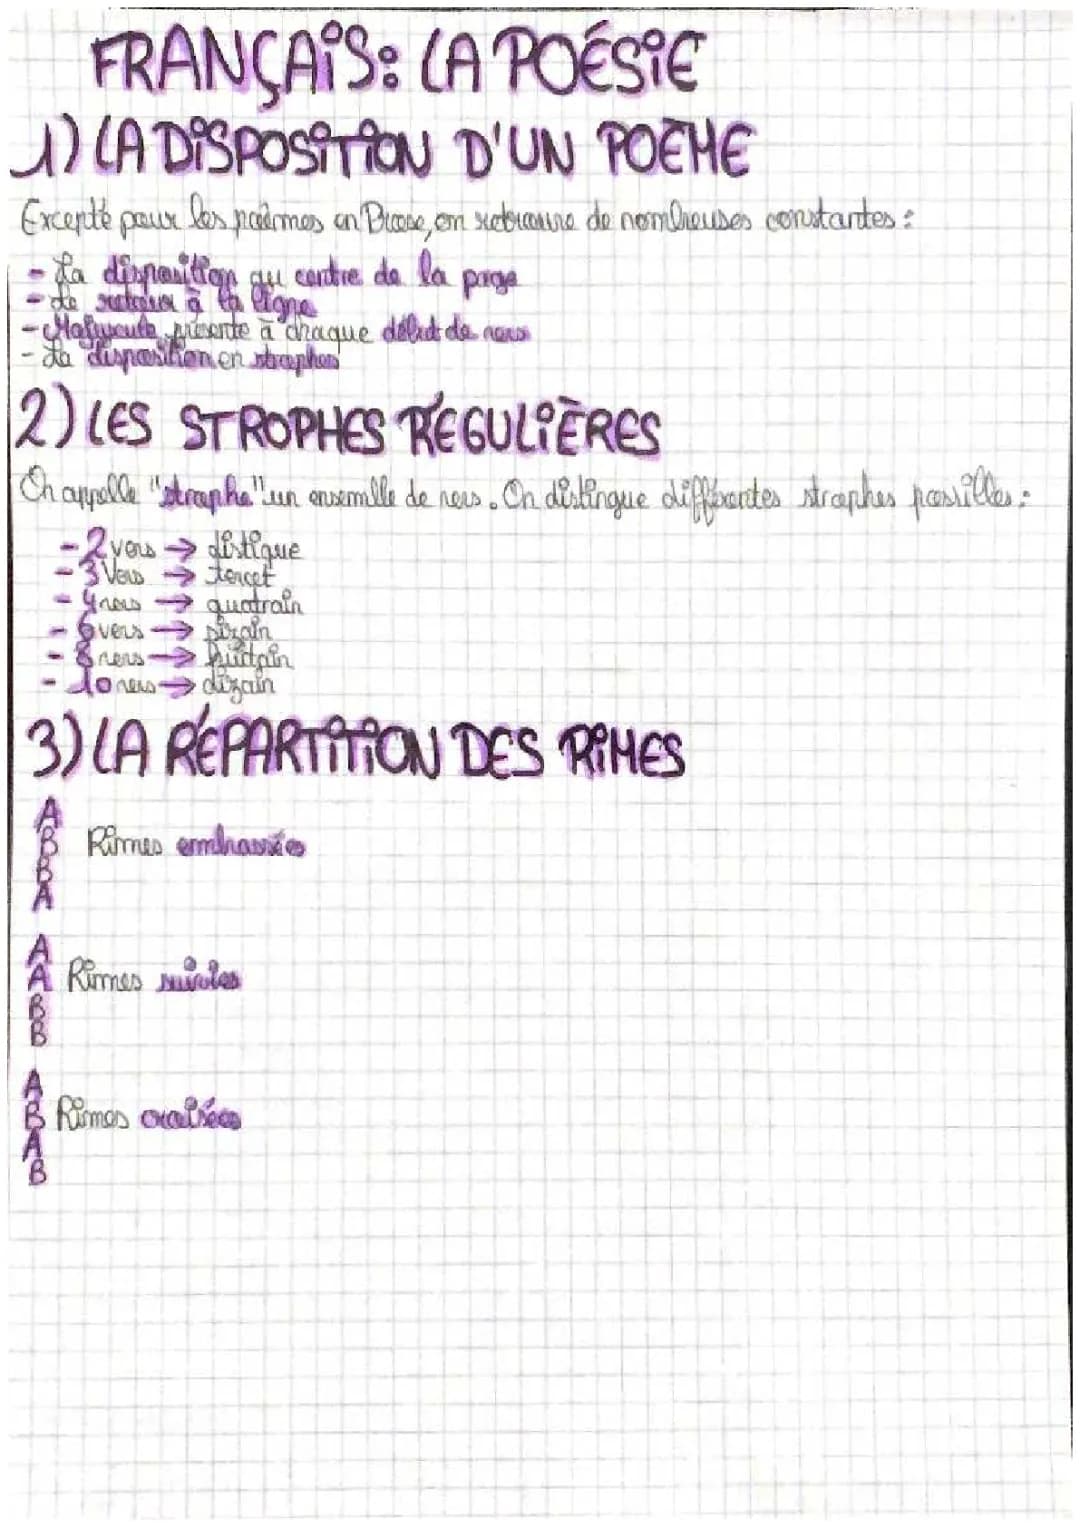 FRANÇAIS: LA POÉSIE
1) LA DISPOSITION D'UN POÈME
Excepté pour les poèmes en Prose, on retrouve de nombreuses constantes :
- La disposition au centre de la page
- Le retour à la ligne
- Majuscule présente à chaque début de vers
- La disposition en strophes
2) LES STROPHES RÉGULIÈRES
On appelle "strophe" un ensemble de vers. On distingue différentes strophes possibles :
- 2 vers → distique
- 3 Vers → tercet
- 4 vers → quatrain
- 6 vers → sizain
- 8 vers → huitain
- 10 vers → dizain
3) LA RÉPARTITION DES RIMES
A
B Rimes embrassées
B
A
A
A Rimes suivies
B
B
A
B Rimes croisées
A
B